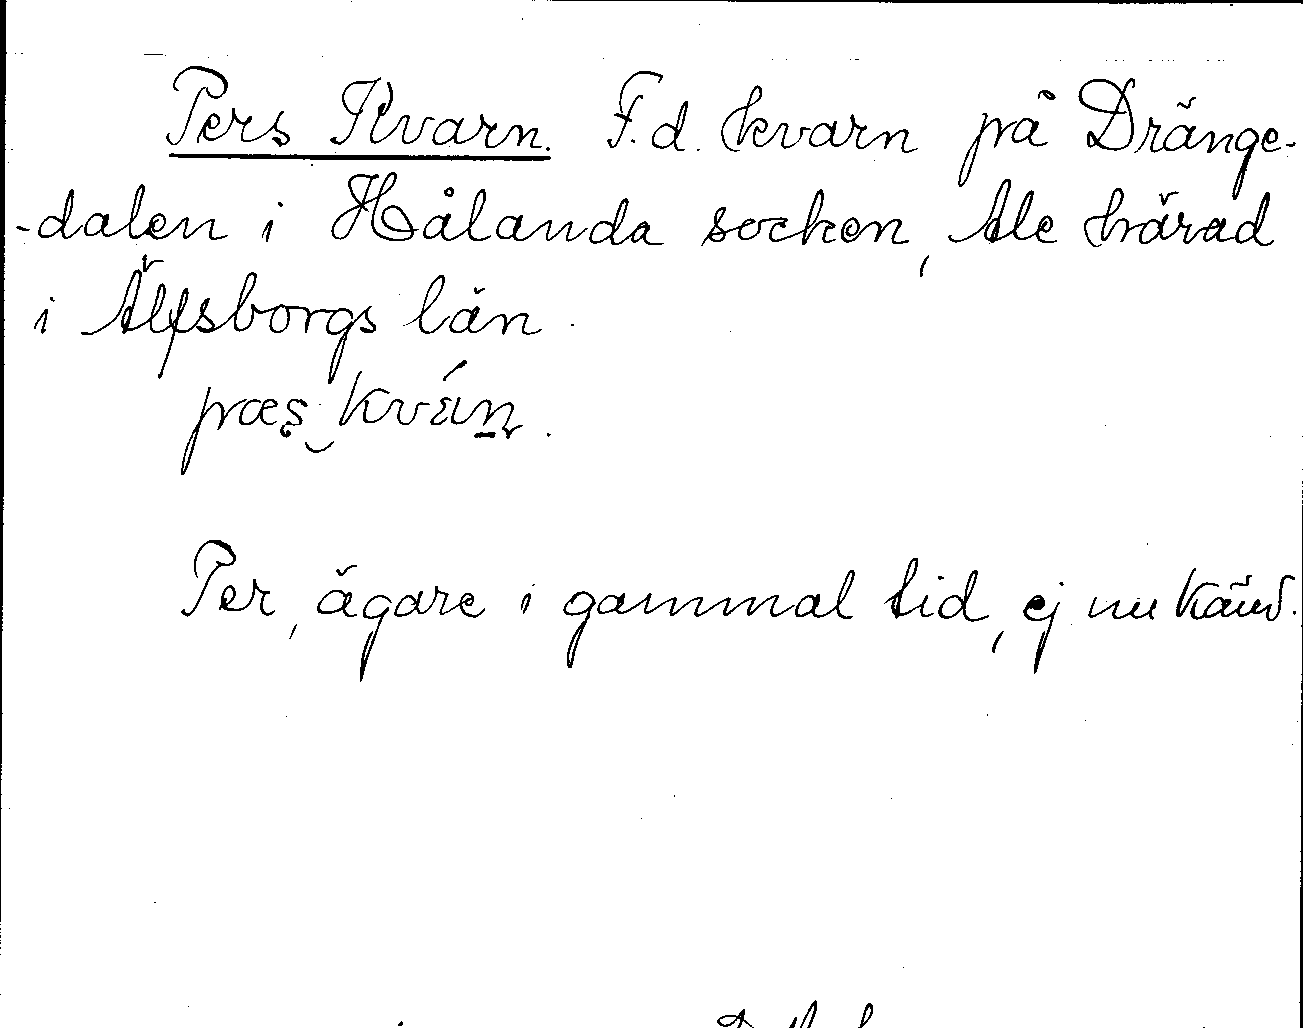 Pers Kvarn. F.d. kvarn på Dränge-
-dalen i Hålanda socken, Ale härad
i Älfsborgs län.
Per, ägare i gammal tid, ej nu känd.